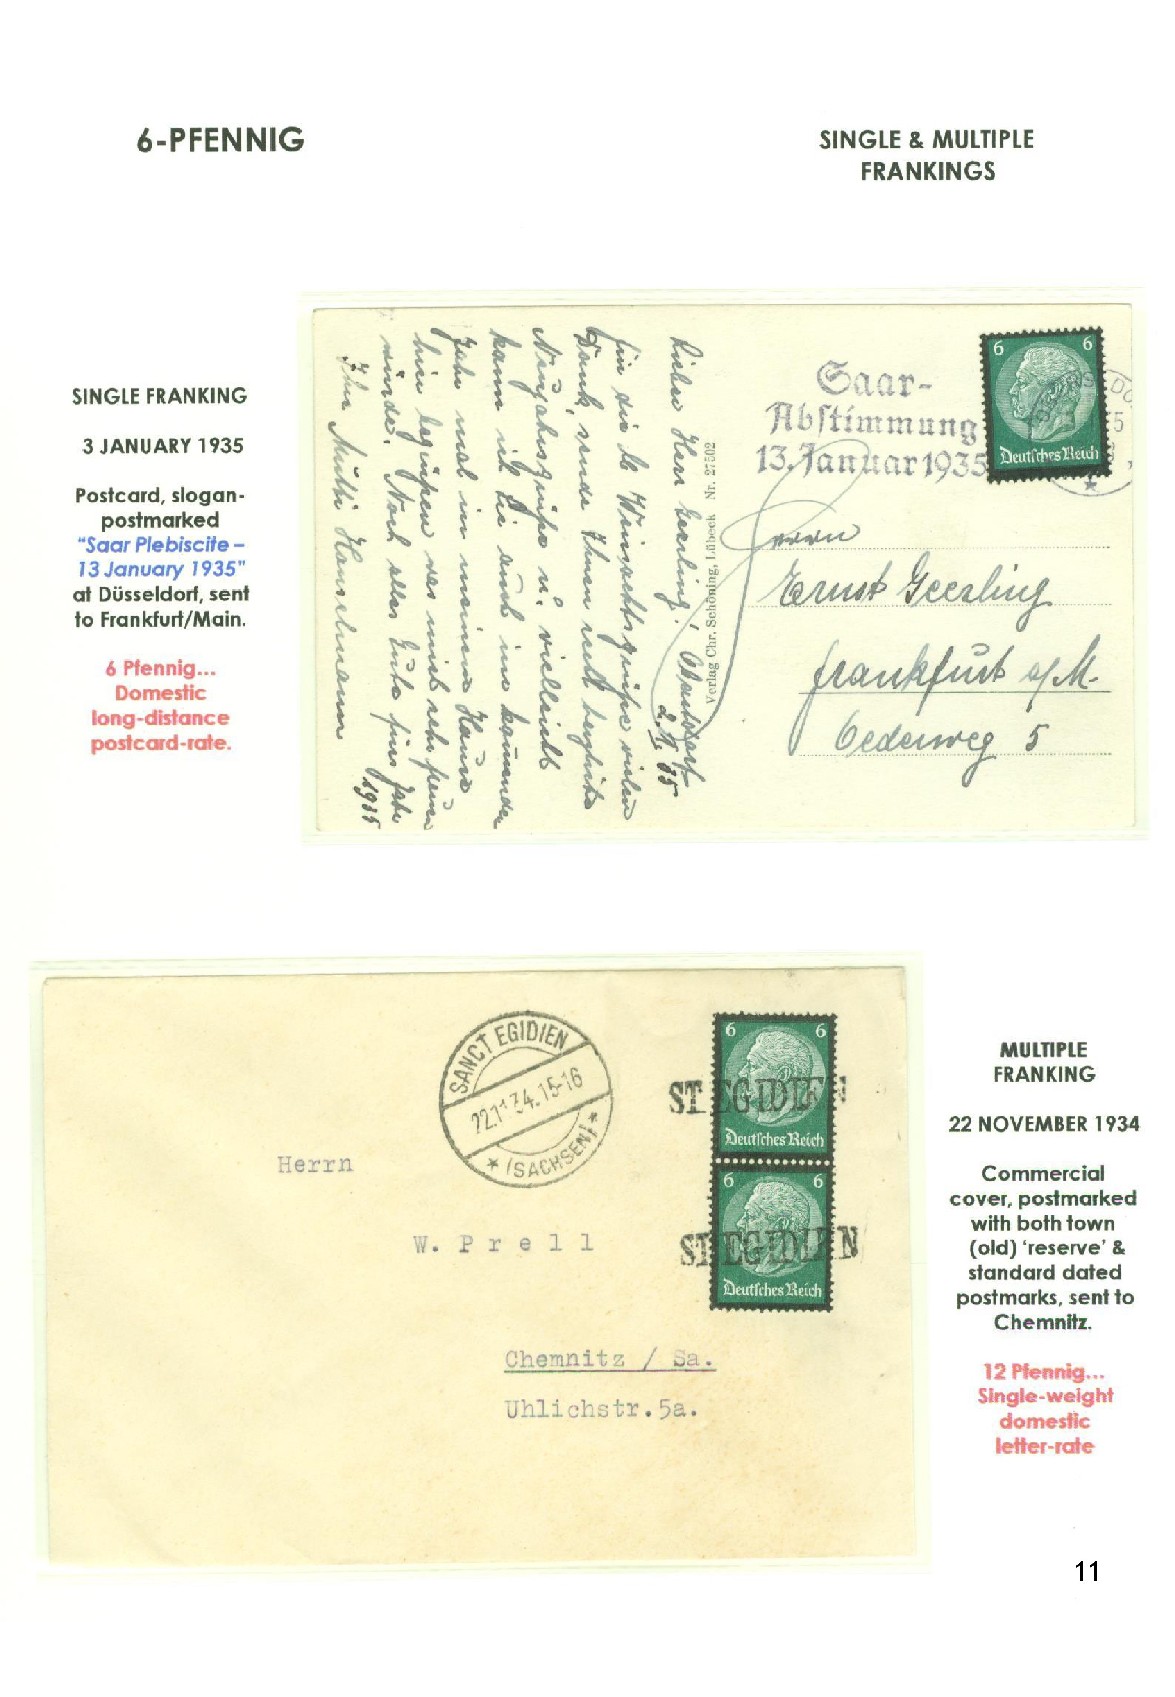 6-PFENNIG
SINGLE & MULTIPLE
FRANKINGS
SINGLE FRANKING
3 JANUARY 1935
Postcard, slogan-
postmarked
“Saar Plebiscite –
13 January 1935”
at Düsseldorf, sent
to Frankfurt/Main.
6 Pfennig...
Domestic
long-distance
postcard-rate.
Lieber Herr Geesling!
2. 35
für die lb Weinachtsgrüße vielen
Dank, sende Ihnen recht herzliche
Neujahrsgrüße u. vielleicht
kann ich Sie auch im kommenden
Jahr mal in meinem Hause
hier begrüßen was mich sehr freuen
würde. Noch alles Gute fürs Jahr
1935
Ihre
Verlag Chr. Schöning, Lübeck Nr. 27502
Saar-
Abstimmung
13. Januar 1935
6 6
Deutsches Reich
Herrn
Ernst Geesling
Frankfurt a/M.
Oederweg 5
SANCT EGIDIEN
22.11.34.15-16
* (SACHSEN) *
6 6
ST EGIDIEN
Deutsches Reich
6 6
ST EGIDIEN
Deutsches Reich
Herrn
W. Prell
Chemnitz / Sa.
Uhlichstr.5a.
MULTIPLE
FRANKING
22 NOVEMBER 1934
Commercial
cover, postmarked
with both town
(old) ‘reserve’ &
standard dated
postmarks, sent to
Chemnitz.
12 Pfennig...
Single-weight
domestic
letter-rate
11